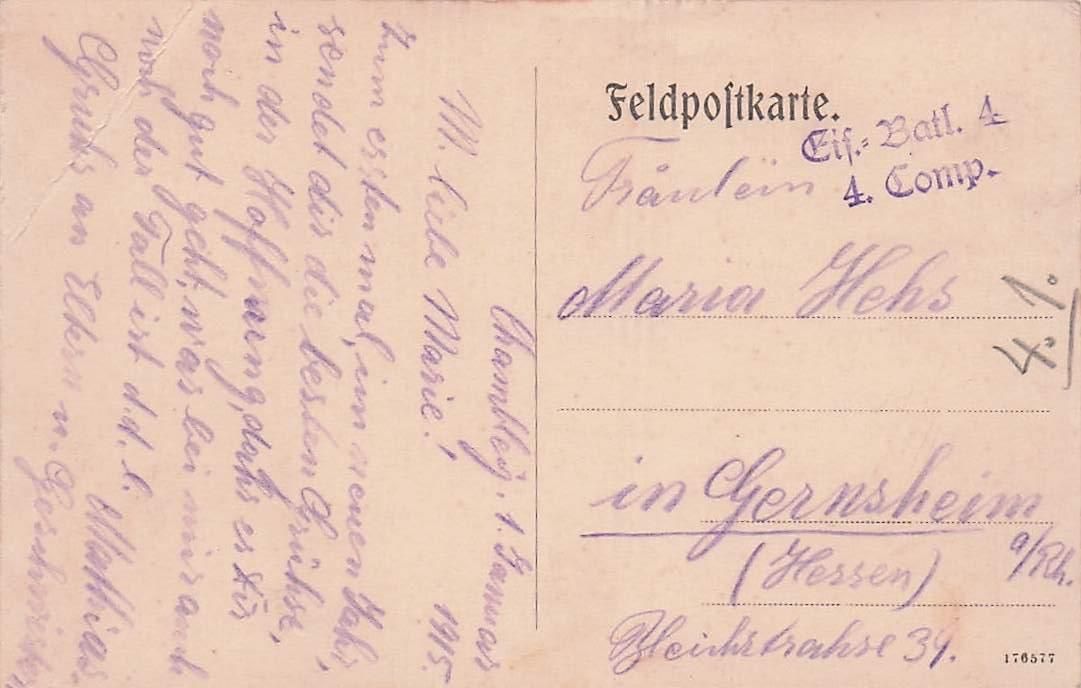 Chambley, 1. Januar
1915
M. liebe Marie!
Zum erstenmal, im neuen Jahr,
sendet dir die besten Grühse,
in der Hoffnung, dahs es dir
noch gut geht, was bei mir auch
noch der Fall ist d. d. l. Matthias.
Gruhs an Eltern u. Geschwister
Feldpostkarte.
Eis.-Batl. 4
4. Comp.
Fräulein
Maria Hehs
4. 1.
in Gernsheim
a/Rh.
(Hessen)
Bleichstrahse 34.
176577